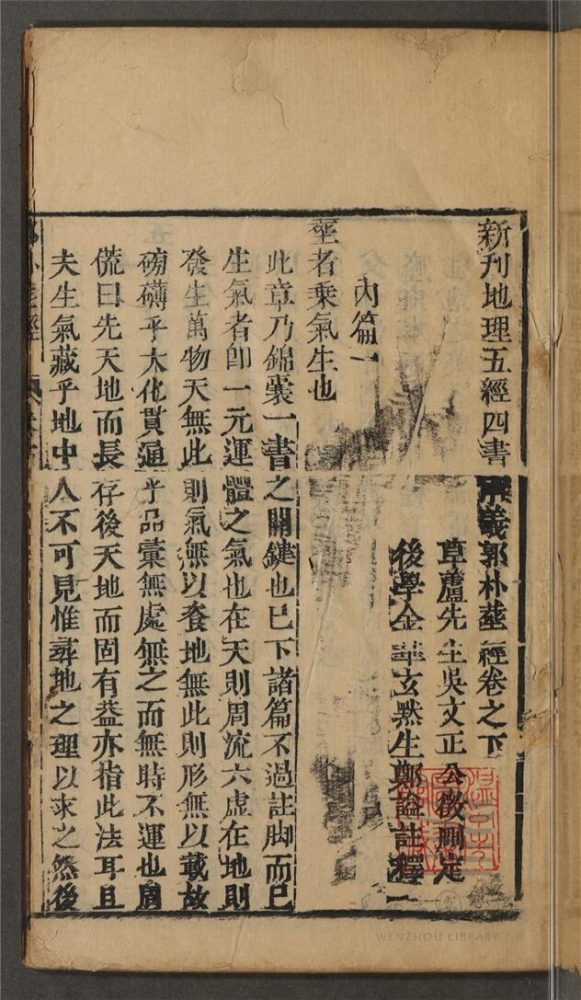 新刊地理五經四書解義郭朴葬經卷之下
草蘆先生吳文正公澂刪定
後學金華玄默生鄭謐註釋
內篇一
葬者乘氣生也
此章乃錦囊一書之關鍵也已下諸篇不過註脚而已
生氣者卽一元運體之氣也在天則周流六虛在地則
發生萬物天無此則氣無以資地無此則形無以載故
磅礴乎大化貫通乎品彙無處無之而無時不運也周
㡛曰先天地而長存後天地而固有蓋亦指此法耳且
夫生氣藏乎地中人不可見惟葬地之理以求之然後
WENZHOU LIBRARY